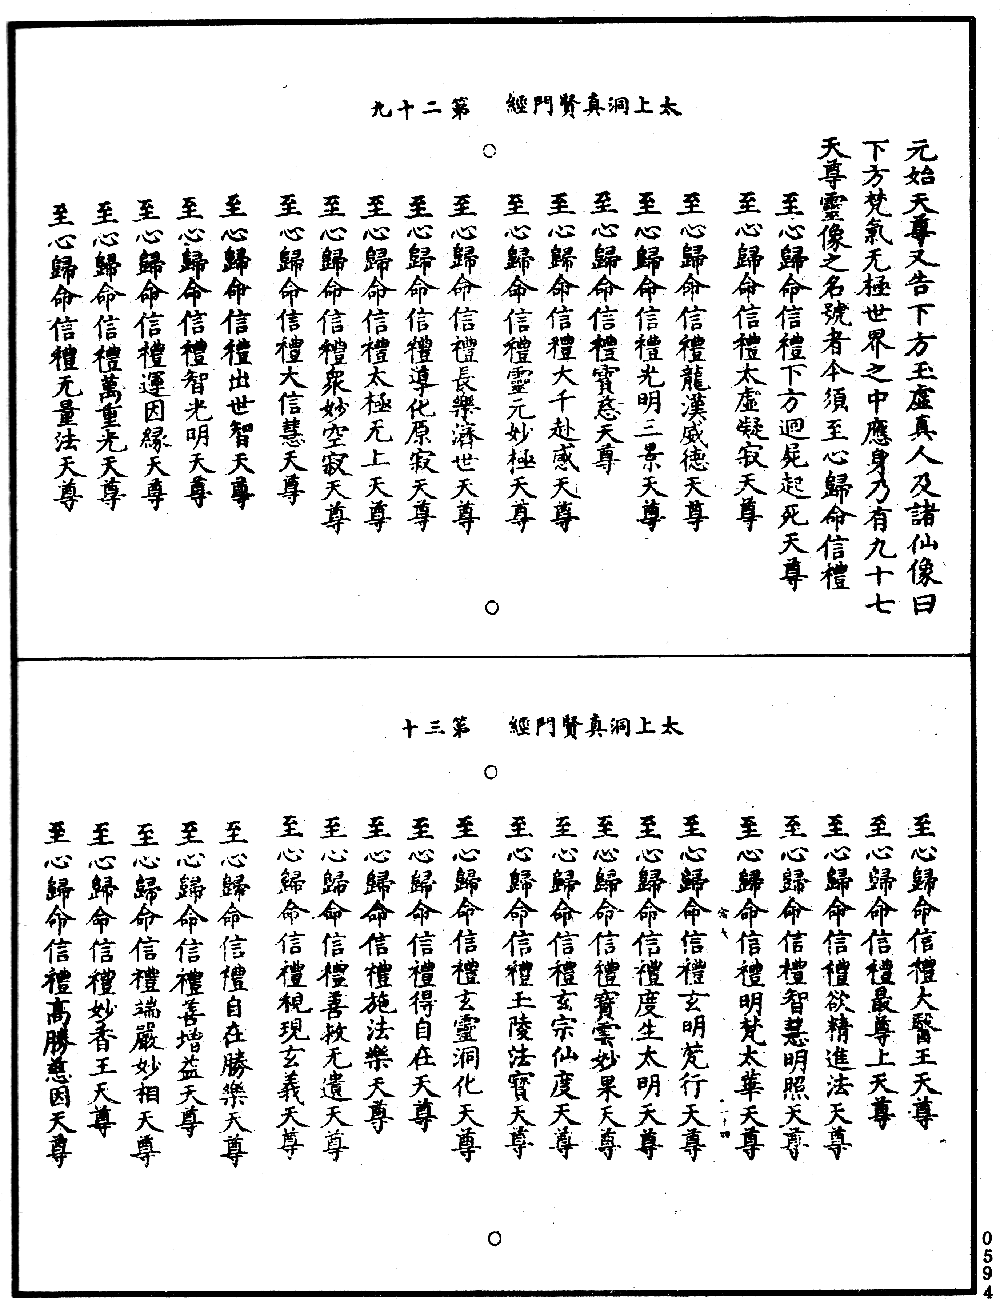 太上洞真賢門經　第二十九
元始天尊又告下方玉虛真人及諸仙像曰
下方梵氣无極世界之中應身乃有九十七
天尊靈像之名號者今須至心歸命信禮
至心歸命信禮下方迴屍起死天尊
至心歸命信禮太虛凝寂天尊
至心歸命信禮龍漢威德天尊
至心歸命信禮光明三景天尊
至心歸命信禮寶慈天尊
至心歸命信禮大千赴感天尊
至心歸命信禮靈元妙極天尊
至心歸命信禮長樂濟世天尊
至心歸命信禮導化原寂天尊
至心歸命信禮太極无上天尊
至心歸命信禮眾妙空寂天尊
至心歸命信禮大信慧天尊
至心歸命信禮出世智天尊
至心歸命信禮智光明天尊
至心歸命信禮運因緣天尊
至心歸命信禮萬重光天尊
至心歸命信禮无量法天尊
太上洞真賢門經　第三十
至心歸命信禮大醫王天尊
至心歸命信禮最尊上天尊
至心歸命信禮欲精進法天尊
至心歸命信禮智慧明照天尊
至心歸命信禮明梵太華天尊
至心歸命信禮玄明梵行天尊
至心歸命信禮度生太明天尊
至心歸命信禮寶雲妙果天尊
至心歸命信禮玄宗仙度天尊
至心歸命信禮王陵法寶天尊
至心歸命信禮玄靈洞化天尊
至心歸命信禮得自在天尊
至心歸命信禮施法樂天尊
至心歸命信禮善救无遺天尊
至心歸命信禮視現玄義天尊
至心歸命信禮自在勝樂天尊
至心歸命信禮善增益天尊
至心歸命信禮端嚴妙相天尊
至心歸命信禮妙香王天尊
至心歸命信禮高勝慈因天尊
0594